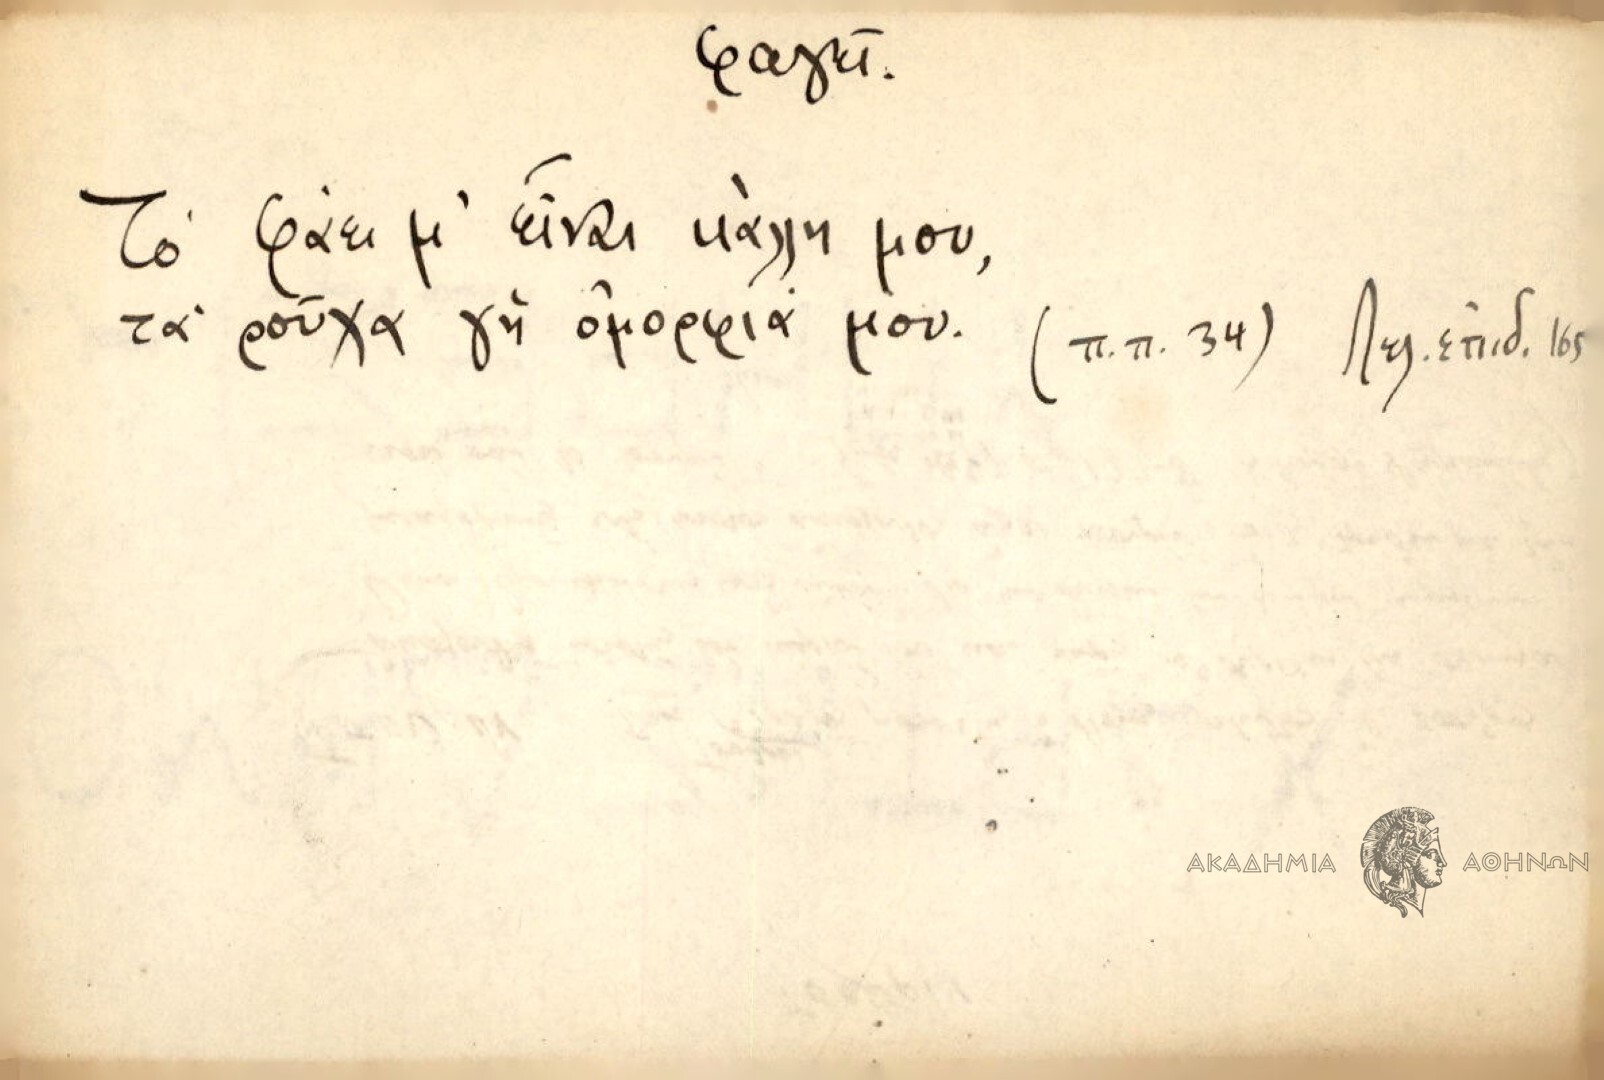 φαγεῖ.
Τὸ φάει μ' εἶναι κάλλη μου,
τὰ ροῦχα γὴ ὀμορφιά μου. (π.π. 34) Λελ. ἐπιδ. 165
ΑΚΑΔΗΜΙΑ ΑΘΗΝΩΝ